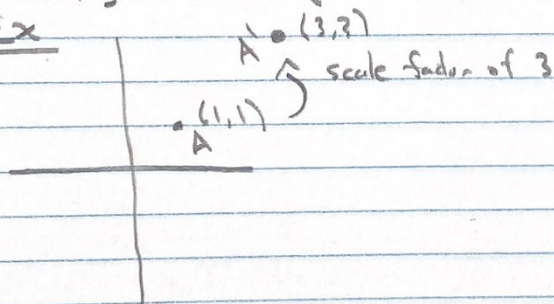 x
A' (3,3)
scale factor of 3
(1,1)
A